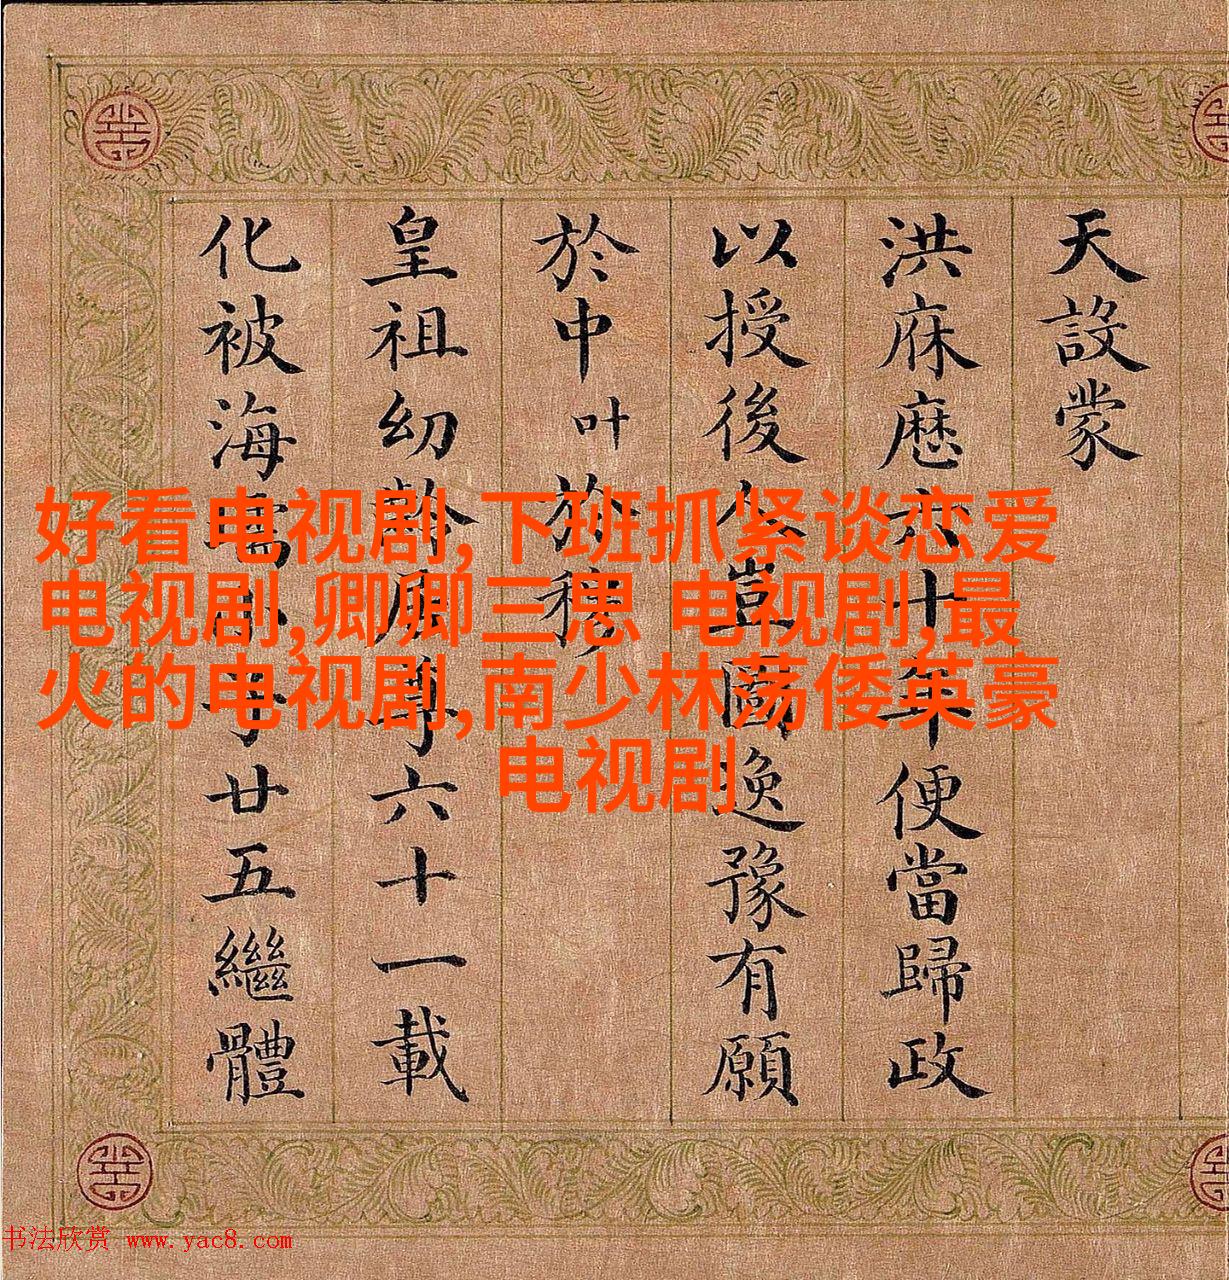 天設蒙
洪庥厯六十年便當歸政
以授後人豈圖逸豫有願
於中叶於穆
皇祖幼齡尊六十一載
化被海寓小子廿五繼體
好看电视剧,下班抓紧谈恋爱
电视剧,卿卿三思 电视剧,最
火的电视剧,南少林荡倭英豪
电视剧
书法欣赏 www.yac8.com